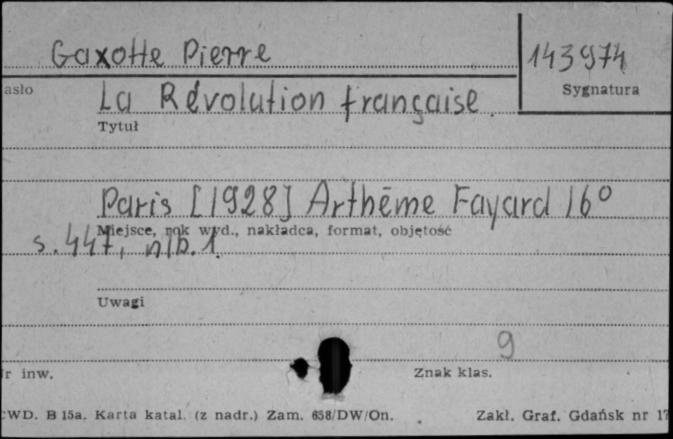 Gaxotte Pierre
143974
asło
Sygnatura
La Révolution française.
Tytuł
Paris [1928] Arthème Fayard 16°
Miejsce, rok wyd., nakładca, format, objętość
s. 447, nlb. 1
Uwagi
9
r inw.
Znak klas.
WD. B 15a. Karta katal. (z nadr.) Zam. 658/DW/On.
Zakł. Graf. Gdańsk nr 17